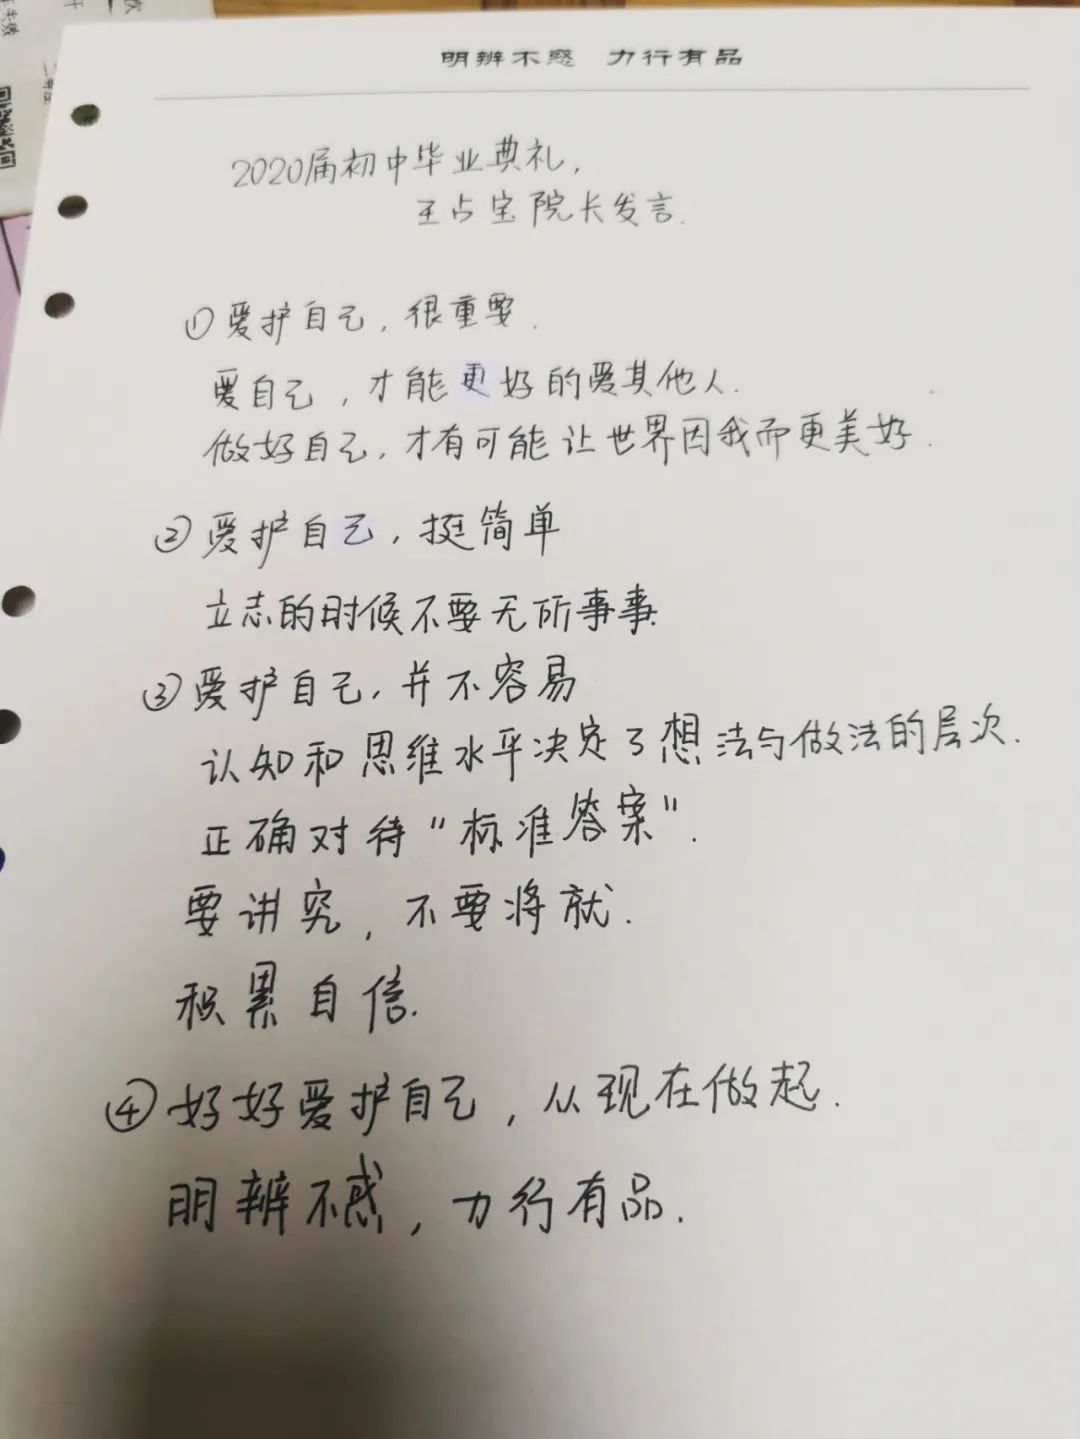 明辨不惑 力行有品
2020届初中毕业典礼,
王占宝院长发言.
①爱护自己,很重要.
爱自己,才能更好的爱其他人.
做好自己,才有可能让世界因我而更美好.
②爱护自己,挺简单
立志的时候不要无所事事.
③爱护自己,并不容易
认知和思维水平决定了想法与做法的层次.
正确对待"标准答案".
要讲究,不要将就.
积累自信.
④好好爱护自己,从现在做起.
明辨不惑,力行有品.